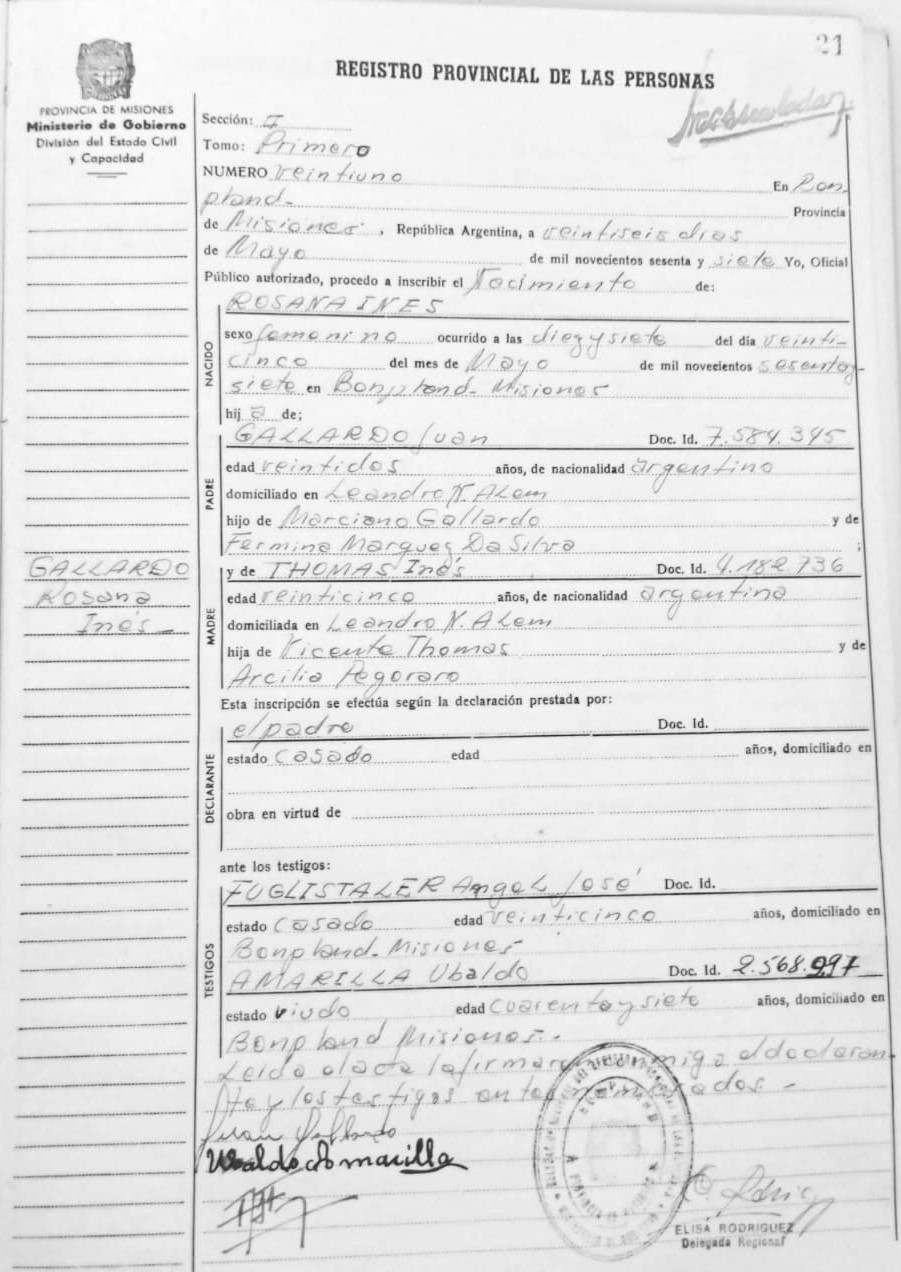 21
REGISTRO PROVINCIAL DE LAS PERSONAS
PROVINCIA DE MISIONES
Ministerio de Gobierno
División del Estado Civil
y Capacidad
Sección: I
Tomo: Primero
NUMERO veintiuno En Bon-
pland- Provincia
de Misiones, República Argentina, a veintiseis dias
de Mayo de mil novecientos sesenta y siete Yo, Oficial
Público autorizado, procedo a inscribir el Nacimiento de:
NACIDO
ROSANA INES
sexo femenino ocurrido a las diez y siete del día veinti-
cinco del mes de Mayo de mil novecientos sesenta y
siete en Bonpland- Misiones
hija de;
PADRE
GALLARDO Juan Doc. Id. 7.584.345
edad veintidos años, de nacionalidad argentino
domiciliado en Leandro N. Alem
hijo de Marciano Gallardo y de
Fermina Marques Da Silva ;
GALLARDO
Rosana
Inés-
MADRE
y de THOMAS Inés Doc. Id. 4.182.736
edad veinticinco años, de nacionalidad argentina
domiciliada en Leandro N. Alem
hija de Vicente Thomas y de
Arcilia Pegoraro
Esta inscripción se efectúa según la declaración prestada por:
DECLARANTE
el padre Doc. Id.
estado casado edad años, domiciliado en
obra en virtud de
ante los testigos:
TESTIGOS
FUGLISTALER Angel José Doc. Id.
estado casado edad veinticinco años, domiciliado en
Bonpland- Misiones
AMARILLA Ubaldo Doc. Id. 2.568.997
estado viudo edad cuarenta y siete años, domiciliado en
Bonpland Misiones.-
Leida el acta la firman conmigo el declaran-
te y los testigos antes nombrados-
Juan Gallardo
Ubaldo Amarilla
ELISA RODRIGUEZ
Delegada Regional